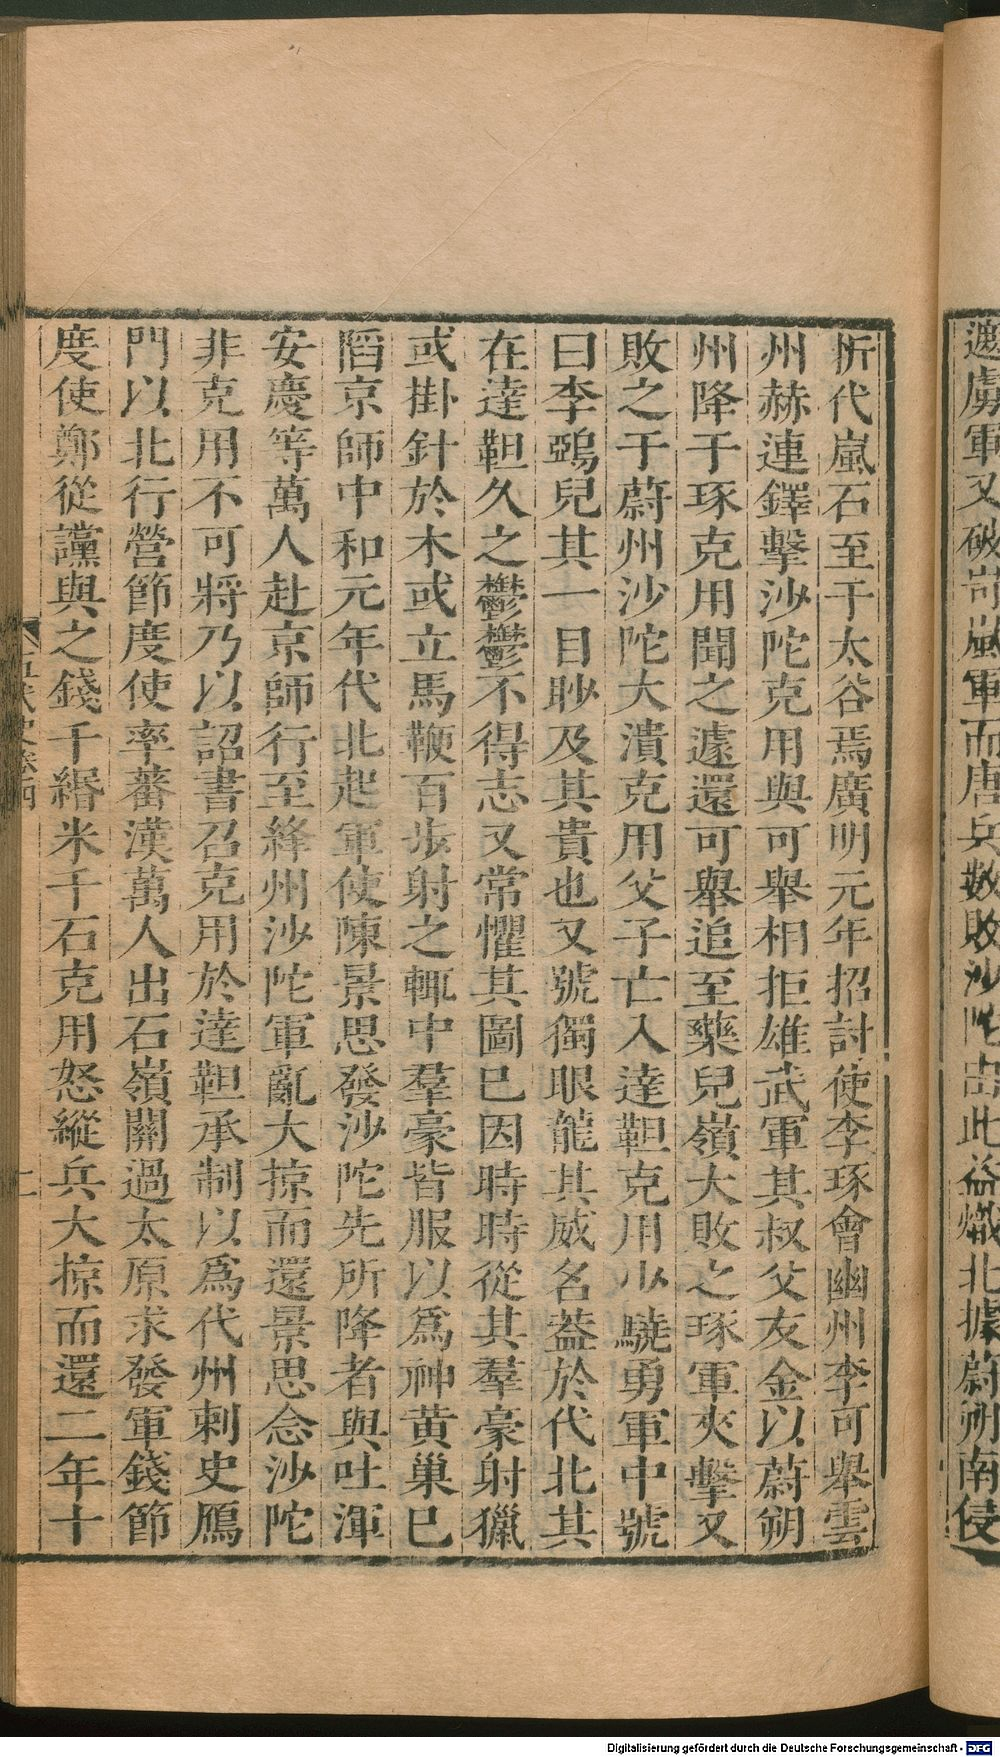 遮虜軍又破岢嵐軍而唐兵數敗沙陀由此益熾北據蔚朔南侵
忻代嵐石至于太谷焉廣明元年招討使李琢會幽州李可舉雲
州赫連鐸擊沙陀克用與可舉相拒雄武軍其叔父友金以蔚朔
州降于琢克用聞之遽還可舉追至藥兒嶺大敗之琢軍夾擊又
敗之于蔚州沙陀大潰克用父子亡入達靼克用少驍勇軍中號
曰李鵶兒其一目眇及其貴也又號獨眼龍其威名葢於代北其
在達靼久之鬱鬱不得志又常懼其圖已因時時從其羣豪射獵
或掛針於木或立馬鞭百步射之輒中羣豪皆服以為神黃巢已
䧟京師中和元年代北起軍使陳景思發沙陀先所降者與吐渾
安慶等萬人赴京師行至絳州沙陀軍亂大掠而還景思念沙陀
非克用不可將乃以詔書召克用於達靼承制以爲代州刺史鴈
門以北行營節度使率蕃漢萬人出石嶺關過太原求發軍錢節
度使鄭從讜與之錢千緡米千石克用怒縱兵大掠而還二年十
五代史卷四
Digitalisierung gefördert durch die Deutsche Forschungsgemeinschaft - DFG